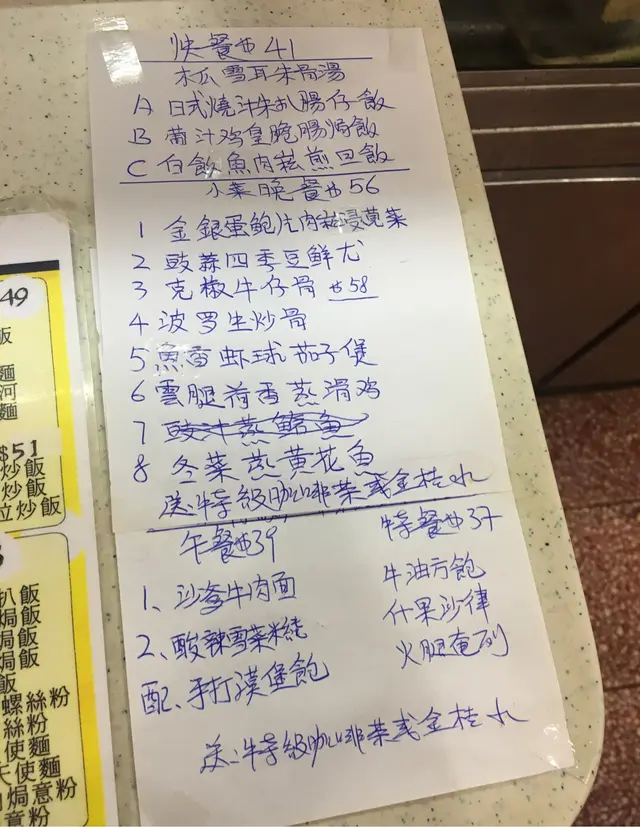 快餐$41
木瓜雪耳朱骨湯
A 日式燒汁朱扒腸仔飯
B 葡汁鸡皇脆腸焗飯
C 白飯魚肉崧煎旦飯
小菜晚餐$56
1 金銀蛋鮑片肉崧浸莧菜
2 豉蒜四季豆鮮尤
3 克椒牛仔骨 $58
4 波罗生炒骨
5 魚香虾球茄子煲
6 雲腿荷香蒸滑鸡
7 豉汁蒸鱔魚
8 冬菜蒸黄花魚
送:特级咖啡茶或金桂水
午餐$39
1、沙爹牛肉面
2、酸辣雪菜米線
配、手打漢堡飽
特餐$37
牛油方飽
什果沙律
火腿奄列
送:特级咖啡茶或金桂水
49
飯
麵
河
麵
$51
炒飯
炒飯
立炒飯
扒飯
焗飯
焗飯
焗飯
飯
螺絲粉
絲粉
使麵
天使麵
焗意粉
意粉